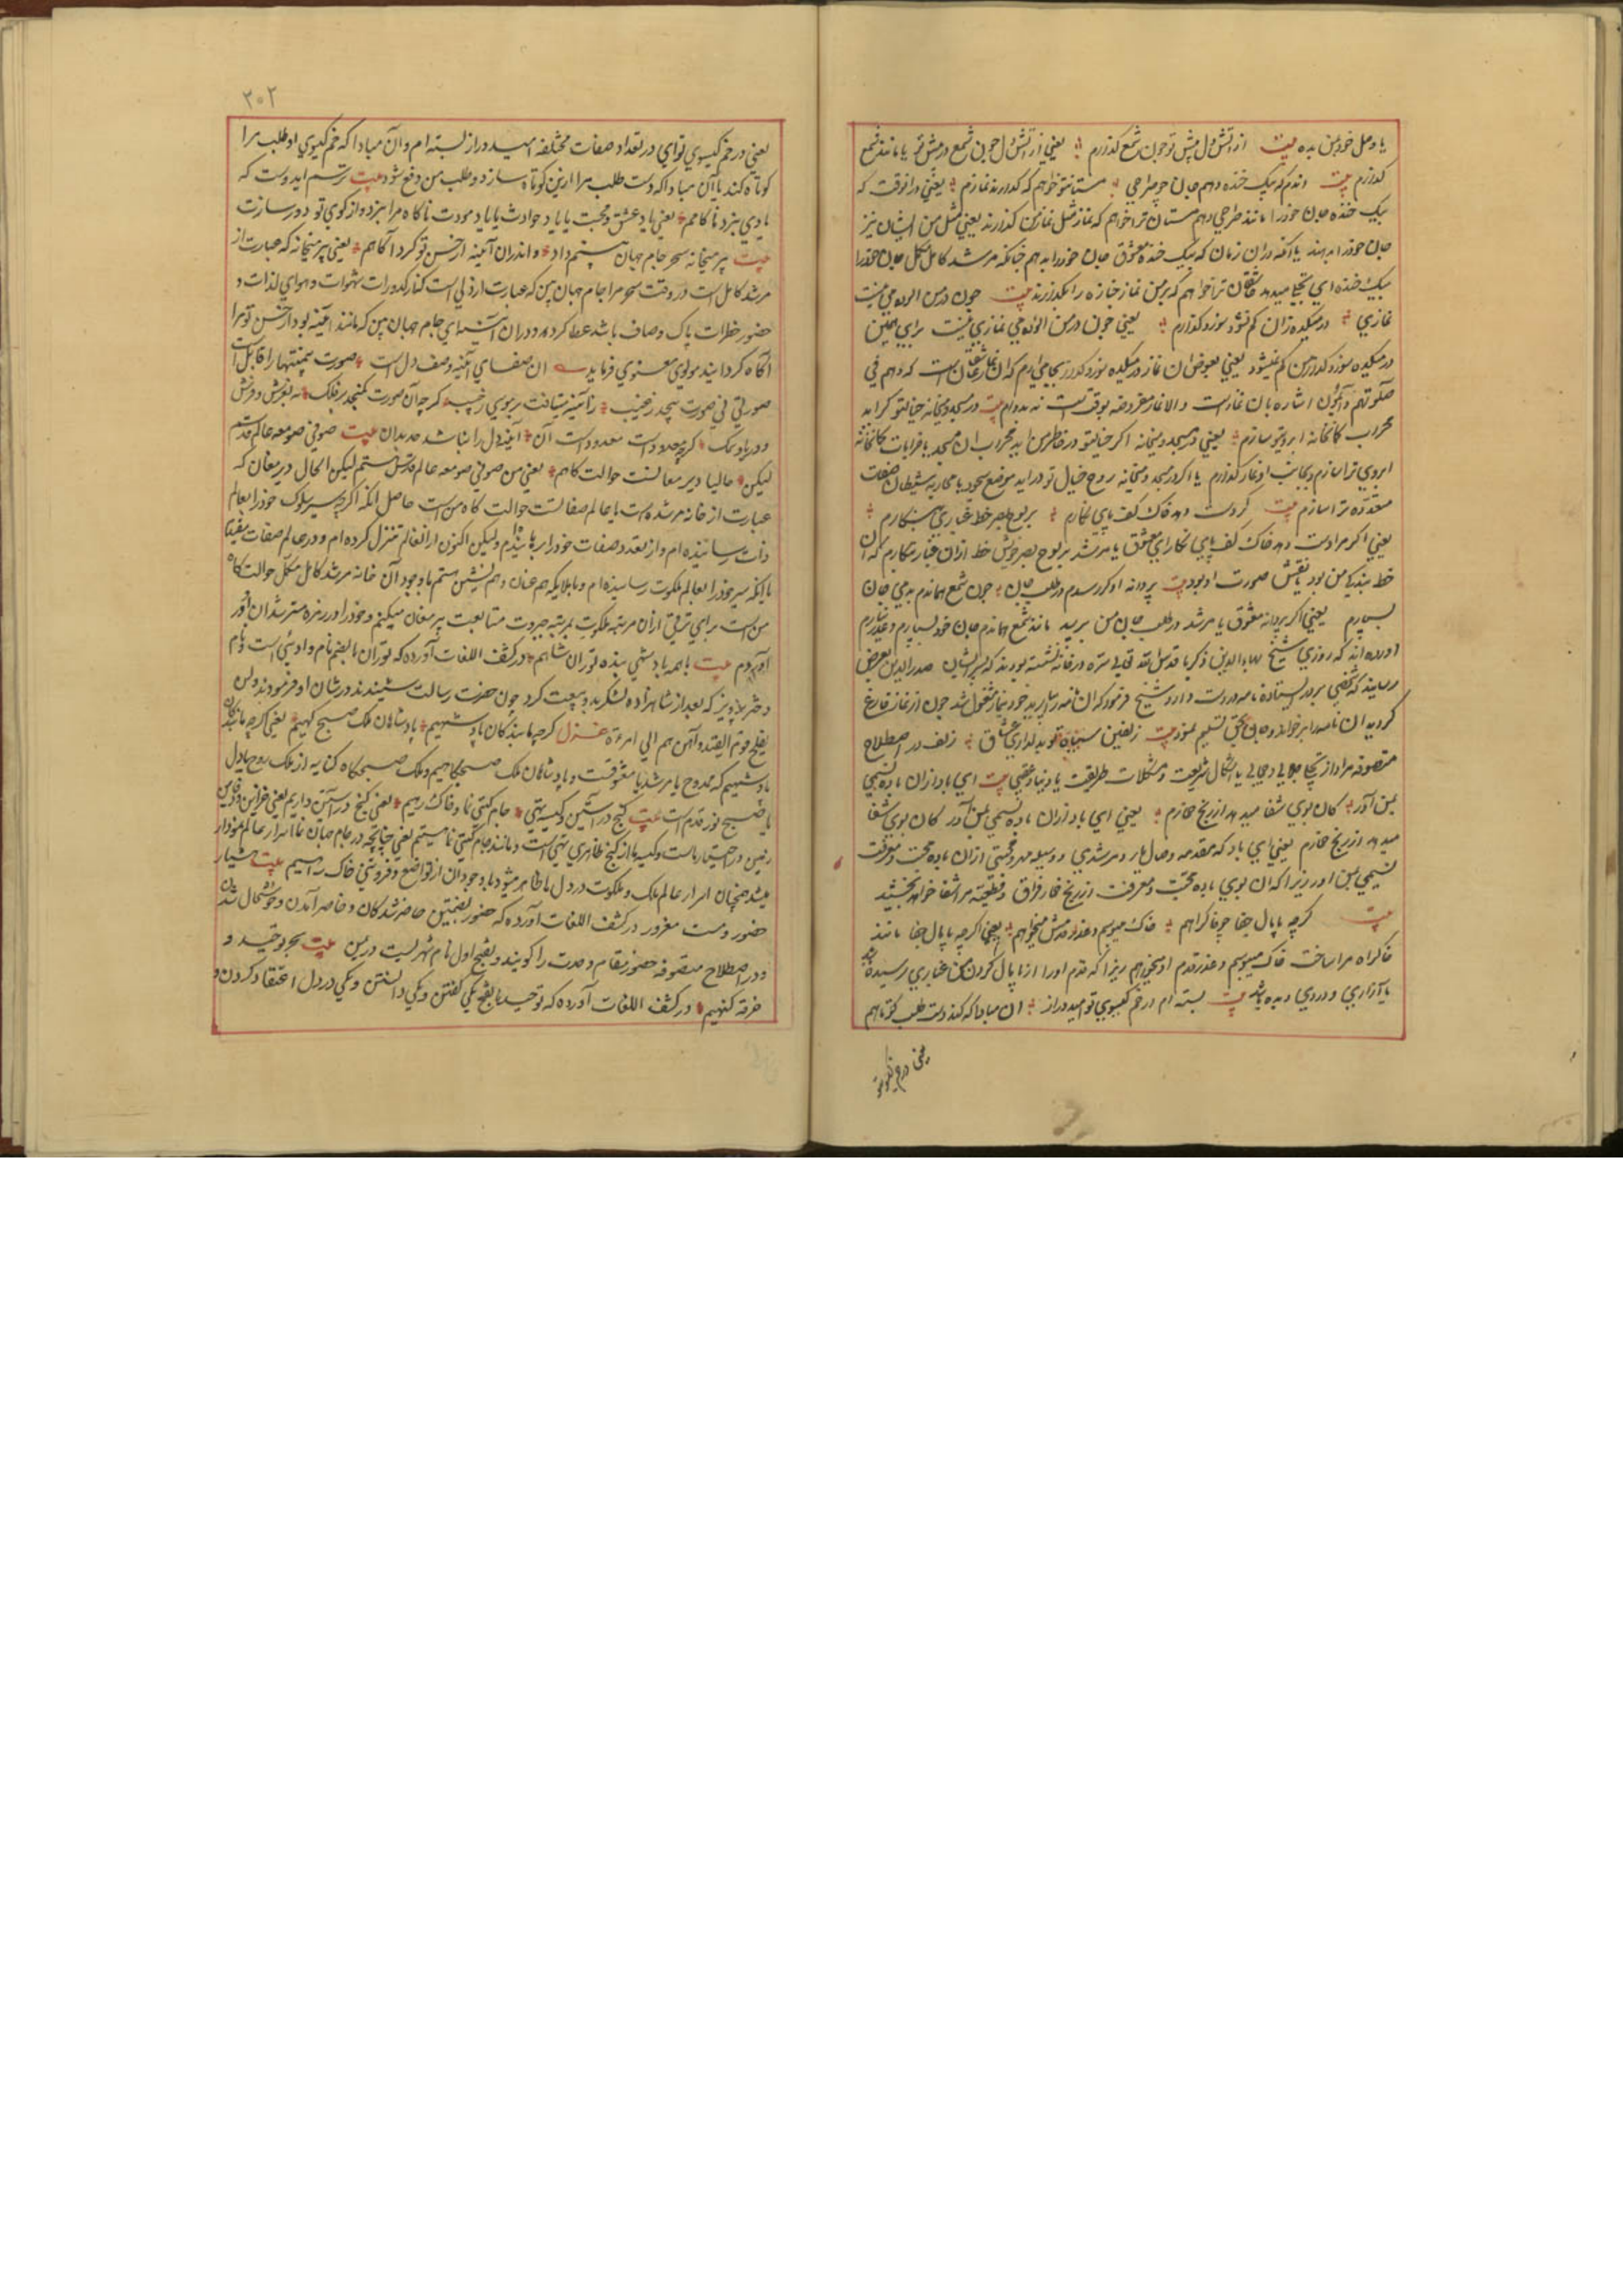 یا وصل خویش بده بیت از آتش دل پیش تو چون شمع گدازم یعنی از آتش دل چون شمع در پیش تو یا مانند شمع
گدازم بیت اندم که بیک خنده دهم جان چو صراحی مستان تو خواهم که گذارند نمازم یعنی در انوقت که
بیک خنده جان خود را مانند صراحی دهم مستان ترا خواهم که نماز مثل نماز من گذارند یعنی مثل من ایشان نیز
جان خود را بدهند یا آنکه دران زمان که بیک خنده معشوق جان خود را بدهم چنانکه مرشد کامل مکمل جان خود را
بیک خنده ای تجلی میدهد عاشقان ترا خواهم که بر من نماز جنازه را بگذارند بیت چون در من الوده می نیست
نمازی در میکده زان کم نشود سوز و گدازم یعنی چون در من الوده می نمازی نیست برای همین
در میکده سوز و گداز من کم نمیشود یعنی بعوض ان نماز در میکده سوز و گداز بجا می ارم که ان نماز عاشقان است که و هم فی
صلوتهم دائمون اشاره بان نماز است و الا نماز مفروضه بوقت است نه بدوام بیت در مسجد و میخانه خیالت گر آید
محراب کمانخانه ابروی تو سازم یعنی در مسجد و میخانه اگر خیال تو در خاطر من اید محراب ان مسجد یا خرابات کمانخانه
ابروی ترا سازم و بجانب او نماز گذارم یا اگر در مسجد و میخانه روح خیال تو در اید موضع سجود یا محاربه شیطان صفات
متعدده ترا سازم بیت گر دست دهد خاک کف پای نگارم بر لوح بصر خط غباری بنگارم
یعنی اگر مرا دست دهد خاک کف پای نگار ای معشوق یا مرشد بر لوح بصر خویش خط ازان غبار بنگارم که ان
خط بندگی من بود یا نقش صورت او بود بیت پروانه او گر رسدم در طلب جان چون شمع هماندم بدمی جان
بسپارم یعنی اگر پروانه معشوق یا مرشد در طلب جان من برسد مانند شمع هماندم جان خود بسپارم و عذر نیارم
اورده اند که روزی شیخ بهاءالدین ذکریا قدس الله تعالی سره در خانه نشسته بودند که پسر ایشان صدرالدین بعرض
رسانید که شخصی بر در ایستاده نامه در دست دارد شیخ فرمود که ان نامه را بیارید خود بنماز مشغول شد چون از نماز فارغ
گردید ان نامه را برخواند و جان بحق تسلیم نمود بیت زلفین سیاه تو بدلداری عشاق زلف در اصطلاح
متصوفه مراد از تجلی جلالی و جمالی یا اشکال شریعت و مشکلات طریقت یا دنیا و عقبی بیت ای باد ازان باده نسیمی
بمن آور کان بوی شفا میدهد از رنج خمارم یعنی ای باد ازان باده نسیمی بمن آور کان بوی شفا
میدهد از رنج خمارم یعنی ای باد که مقدمه وصال یار و مرشدی و وسیله مهر و محبتی ازان باده محبت و معرفت
نسیمی بمن اور زیرا که ان بوی باده محبت و معرفت از رنج خمار فراق و قطیعت مرا شفا خواهد بخشید
بیت گرچه پامال جفا چو خاک راهم خاک میبوسم و عذر قدمش میخواهم یعنی اگرچه پامال جفا مانند
خاک راه مرا ساخت خاک میبوسم و عذر قدم او میخواهم زیرا که قدم اورا از پامال کردن من غباری رسیده شد
یا آزاری و دردی دیده باشد بیت بسته ام در خم گیسوی تو امید دراز ان مبادا که کند دست طلب کوتاهم
یعنی در خم گیسوی
۲۰۲
یعنی در خم گیسوی تو ای در تعداد صفات مختلفه امید دراز بسته ام و آن مبادا که خم گیسوی او طلب مرا
کوتاه کند یا آن مبادا که دست طلب مرا ازین کوتاه سازد و طلب من دفع شود بیت ترسم ای دوست که
بادی ببرد ناگاهم یعنی باد عشق و محبت یا باد حوادث یا باد مودت ناگاه مرا ببرد و از کوی تو دور سازد
بیت پیر میخانه سحر جام جهان بینم داد و اندران آئینه از حسن تو کرد آگاهم یعنی پیر میخانه که عبارت از
مرشد کامل است در وقت سحر مرا جام جهان بین که عبارت از دلی است که از کدورات شهوات و هوای لذات و
حضور خطرات پاک و صاف باشد عطا کرد و دران آئینه ای جام جهان بین که مانند آئینه بود از حسن تو مرا
آگاه گردانید مولوی معنوی فرماید ان صفای آئینه وصف دل است صورت بی منتها را قابل است
صورتی بی صورت بیحد و غیب زآئینه دل تافت بر موسی ز جیب گرچه آن صورت نگنجد در فلک نه بعرش و فرش
و دریا و سمک گرچه محدود است معدود است آن آئینه دل را نباشد حد بدان بیت صوفی صومعه عالم قدسم
لیکن حالیا دیر مغانست حوالت گاهم یعنی من صوفی صومعه عالم قدس هستم لیکن الحال دیر مغان که
عبارت از خانه مرشد است یا عالم صفا است حوالت گاه من است حاصل انکه اگرچه بسیر سلوک خود را بعالم
ذات رسانیده ام و از تعدد صفات خود را رهانیدم و لیکن اکنون ازانعالم تنزل کرده ام و در عالم صفات بیفتیم
یا آنکه سیر خود را بعالم ملکوت رسانیده ام و با ملایکه هم عنان و هم نشین هستم با وجود آن خانه مرشد کامل مکمل حوالت گاه
من است برای ترقی ازان مرتبه ملکوت بمرتبه جبروت متابعت پیر مغان میکنم و خود را در زمره مسترشدان او در
آوردم بیت با همه پادشهی بنده توران شاهم در کشف اللغات آورده که توران بالضم نام و ادویئی است و نام
دختر پرویز که بعد از شاهزاده لشکر بدو بیعت کرد چون حضرت رسالت شنیدند در شان او فرمودند ولن
یفلح قوم الیقتدو آهن هم الی امرءة غزل گرچه ما بندگان پادشهیم پادشاهان ملک صبحگهیم یعنی اگرچه ما بندگان
پادشهیم که ممدوح یا مرشد یا معشوقست و پادشاهان ملک صبحگاهیم و ملک صبحگاه کنایه از ملک روح یا دل
یا صبح نور قدم است بیت گنج در آستین و کیسه تهی جام گیتی نما و خاک رهیم یعنی گنج در آستین داریم یعنی خزاین و دفاین
زمین در اختیار ماست و کیسه ما از گنج ظاهری تهی است و مانند جام گیتی نما هستیم یعنی چنانچه در جام جهان نما اسرار عالم نمودار
میشد همچنان اسرار عالم ملک و ملکوت در دل ما ظاهر میشود با وجود ان از تواضع و فروتنی خاک رهیم بیت هشیار
حضور و مست مغرور در کشف اللغات آورده که حضور بضمتین حاضر شدگان و حاضر آمدن و خوشحال شدن
و در اصطلاح متصوفه حضور مقام وحدت را گویند و بفتح اول نام شهریست در یمن بیت بحر توحید و
غرقه گنهیم در کشف اللغات آورده که توحید بالفتح یکی گفتن و یکی دانستن و یکی در دل اعتقاد کردن و